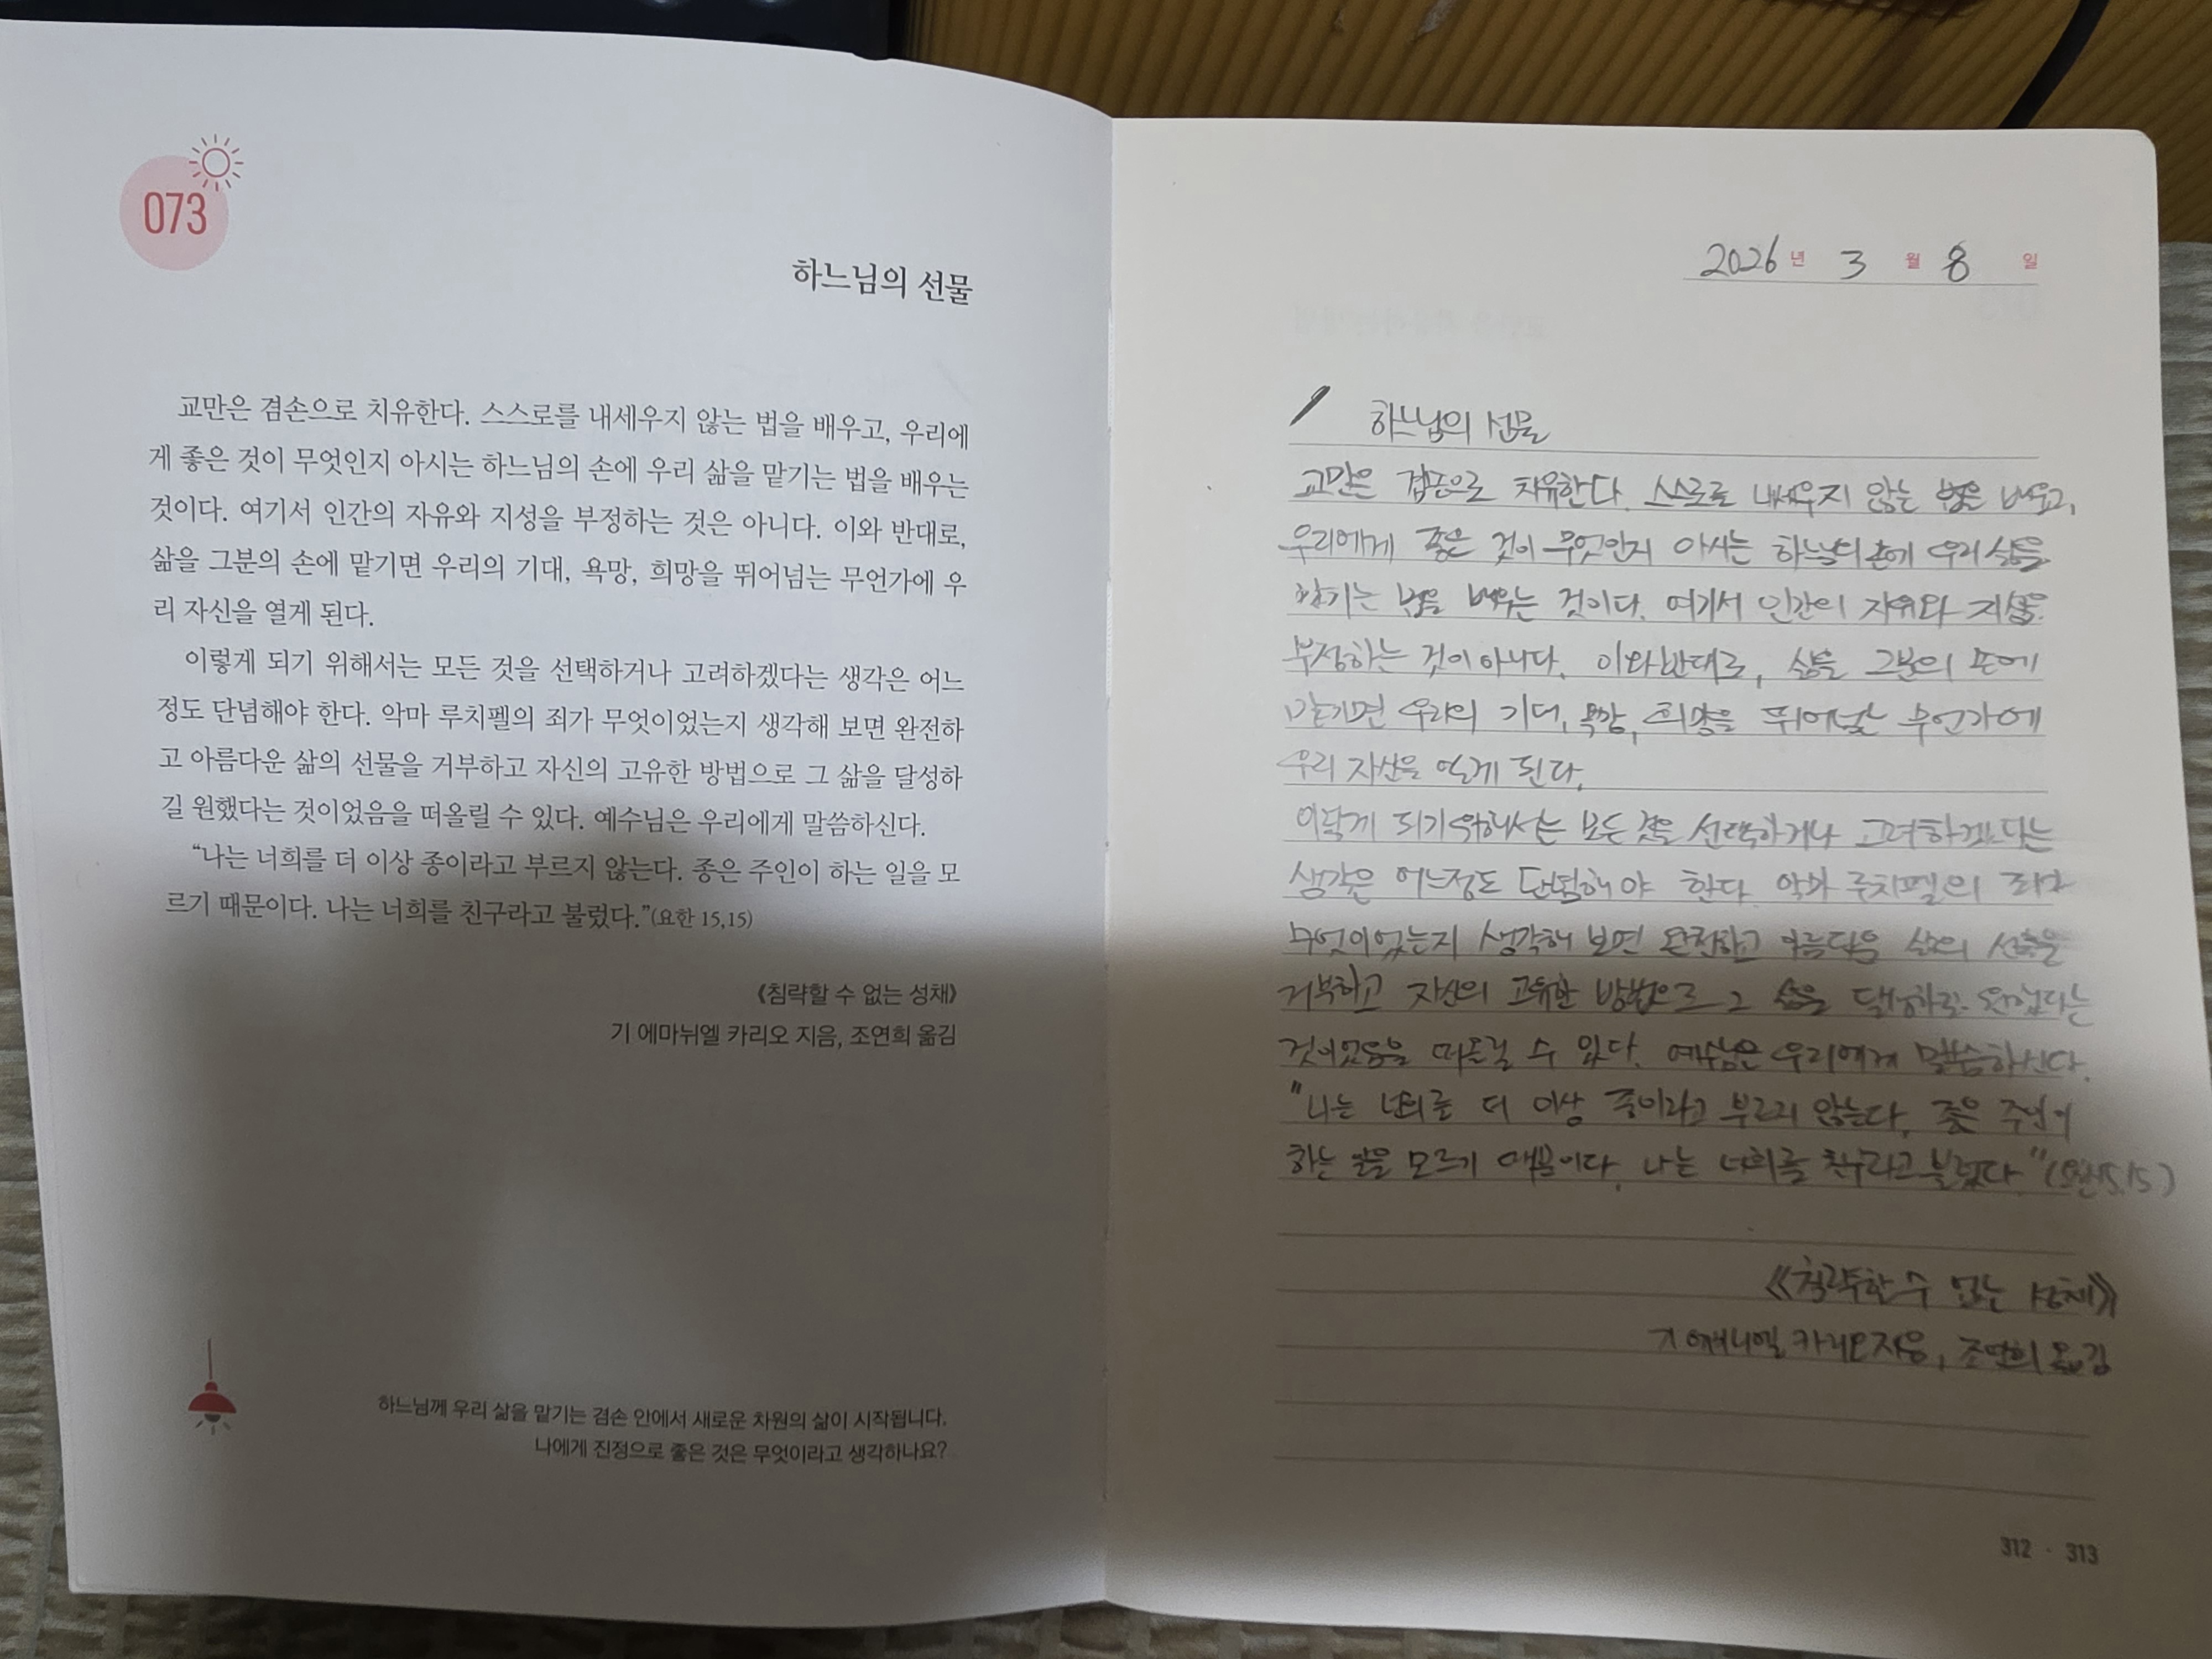 073
하느님의 선물
교만은 겸손으로 치유한다. 스스로를 내세우지 않는 법을 배우고, 우리에
게 좋은 것이 무엇인지 아시는 하느님의 손에 우리 삶을 맡기는 법을 배우는
것이다. 여기서 인간의 자유와 지성을 부정하는 것은 아니다. 이와 반대로,
삶을 그분의 손에 맡기면 우리의 기대, 욕망, 희망을 뛰어넘는 무언가에 우
리 자신을 열게 된다.
이렇게 되기 위해서는 모든 것을 선택하거나 고려하겠다는 생각은 어느
정도 단념해야 한다. 악마 루치펠의 죄가 무엇이었는지 생각해 보면 완전하
고 아름다운 삶의 선물을 거부하고 자신의 고유한 방법으로 그 삶을 달성하
길 원했다는 것이었음을 떠올릴 수 있다. 예수님은 우리에게 말씀하신다.
“나는 너희를 더 이상 종이라고 부르지 않는다. 종은 주인이 하는 일을 모
르기 때문이다. 나는 너희를 친구라고 불렀다.”(요한 15,15)
《침략할 수 없는 성채》
기 에마뉘엘 카리오 지음, 조연희 옮김
하느님께 우리 삶을 맡기는 겸손 안에서 새로운 차원의 삶이 시작됩니다.
나에게 진정으로 좋은 것은 무엇이라고 생각하나요?
2026년 3월 8일
하느님의 선물
교만은 겸손으로 치유한다. 스스로를 내세우지 않는 법을 배우고,
우리에게 좋은 것이 무엇인지 아시는 하느님의 손에 우리 삶을
맡기는 법을 배우는 것이다. 여기서 인간의 자유와 지성을
부정하는 것이 아니다. 이와 반대로, 삶을 그분의 손에
맡기면 우리의 기대, 욕망, 희망을 뛰어넘는 무언가에
우리 자신을 열게 된다.
이렇게 되기 위해서는 모든 것을 선택하거나 고려하겠다는
생각은 어느정도 단념해야 한다. 악마 루치펠의 죄가
무엇이었는지 생각해 보면 완전하고 아름다운 삶의 선물을
거부하고 자신의 고유한 방법으로 그 삶을 원했다는
것이었음을 떠올릴 수 있다. 예수님은 우리에게 말씀하신다.
"나는 너희를 더 이상 종이라고 부르지 않는다. 종은 주인이
하는 일을 모르기 때문이다. 나는 너희를 친구라고 불렀다." (요한15,15)
《침략할 수 없는 성채》
기 카리오 지음, 조연희 옮김
312 · 313